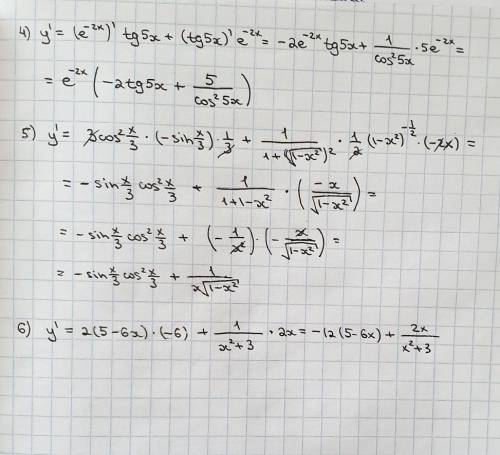 4) y' = (e^{-2x})' tg5x + (tg5x)' e^{-2x} = -2e^{-2x} tg5x + \frac{1}{cos^2 5x} · 5e^{-2x} =
= e^{-2x} (-2tg5x + \frac{5}{cos^2 5x})
5) y' = 3cos^2 \frac{x}{3} · (-sin \frac{x}{3}) · \frac{1}{3} + \frac{1}{1+(\sqrt{1-x^2})^2} · \frac{1}{2} (1-x^2)^{-\frac{1}{2}} · (-2x) =
= -sin \frac{x}{3} cos^2 \frac{x}{3} + \frac{1}{1+1-x^2} · (\frac{-x}{\sqrt{1-x^2}}) =
= -sin \frac{x}{3} cos^2 \frac{x}{3} + (-\frac{1}{x^2}) · (-\frac{x}{\sqrt{1-x^2}}) =
= -sin \frac{x}{3} cos^2 \frac{x}{3} + \frac{1}{x\sqrt{1-x^2}}
6) y' = 2(5-6x) · (-6) + \frac{1}{x^2+3} · 2x = -12(5-6x) + \frac{2x}{x^2+3}